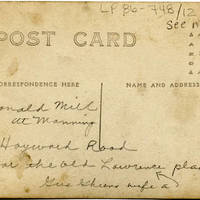 LP 86-748/12
See n
POST CARD
CORRESPONDENCE HERE
NAME AND ADDRESS
onald Mill
at Manning
Hayward Road
or the Old Lawrence pla
Gus wife a